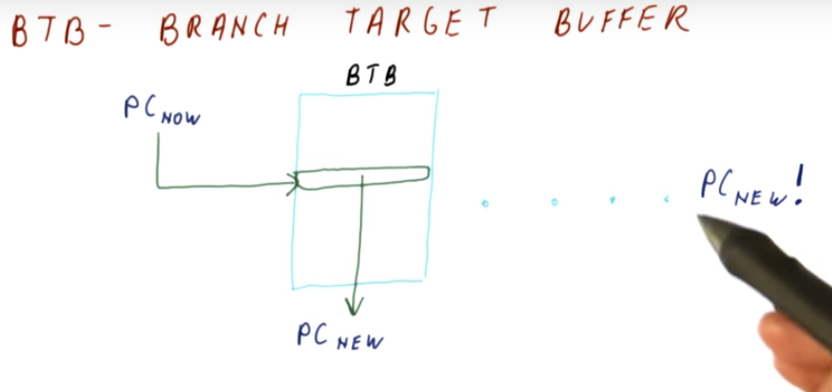 BTB - BRANCH TARGET BUFFER
BTB
PC NOW
PC NEW!
PC NEW